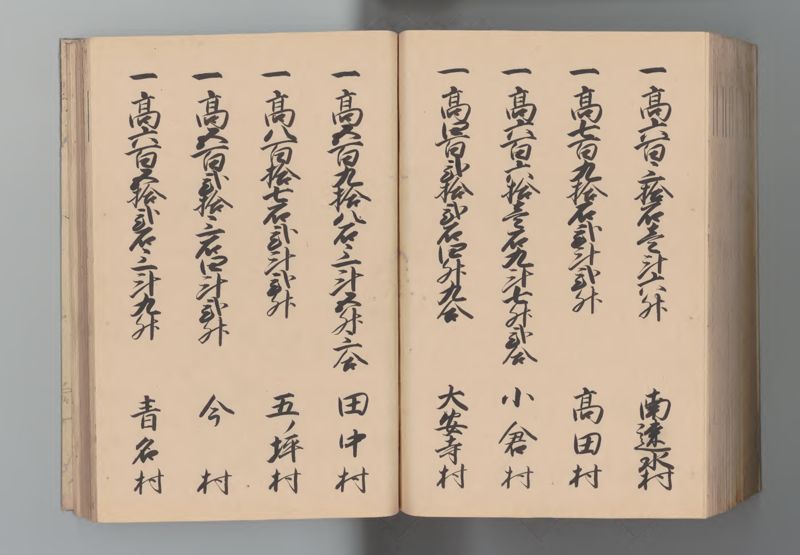 一高六百三拾石壱斗六升 南速水村
一高七百九拾石弐斗弐升 高田村
一高六百六拾壱石九斗七升弐合 小倉村
一高四百弐拾弐石四升九合 大安寺村
一高五百九拾八石三斗五升六合 田中村
一高八百拾七石弐斗弐升 五ノ坪村
一高五百弐拾三石四斗弐升 今村
一高六百五拾弐石三斗九升 青名村